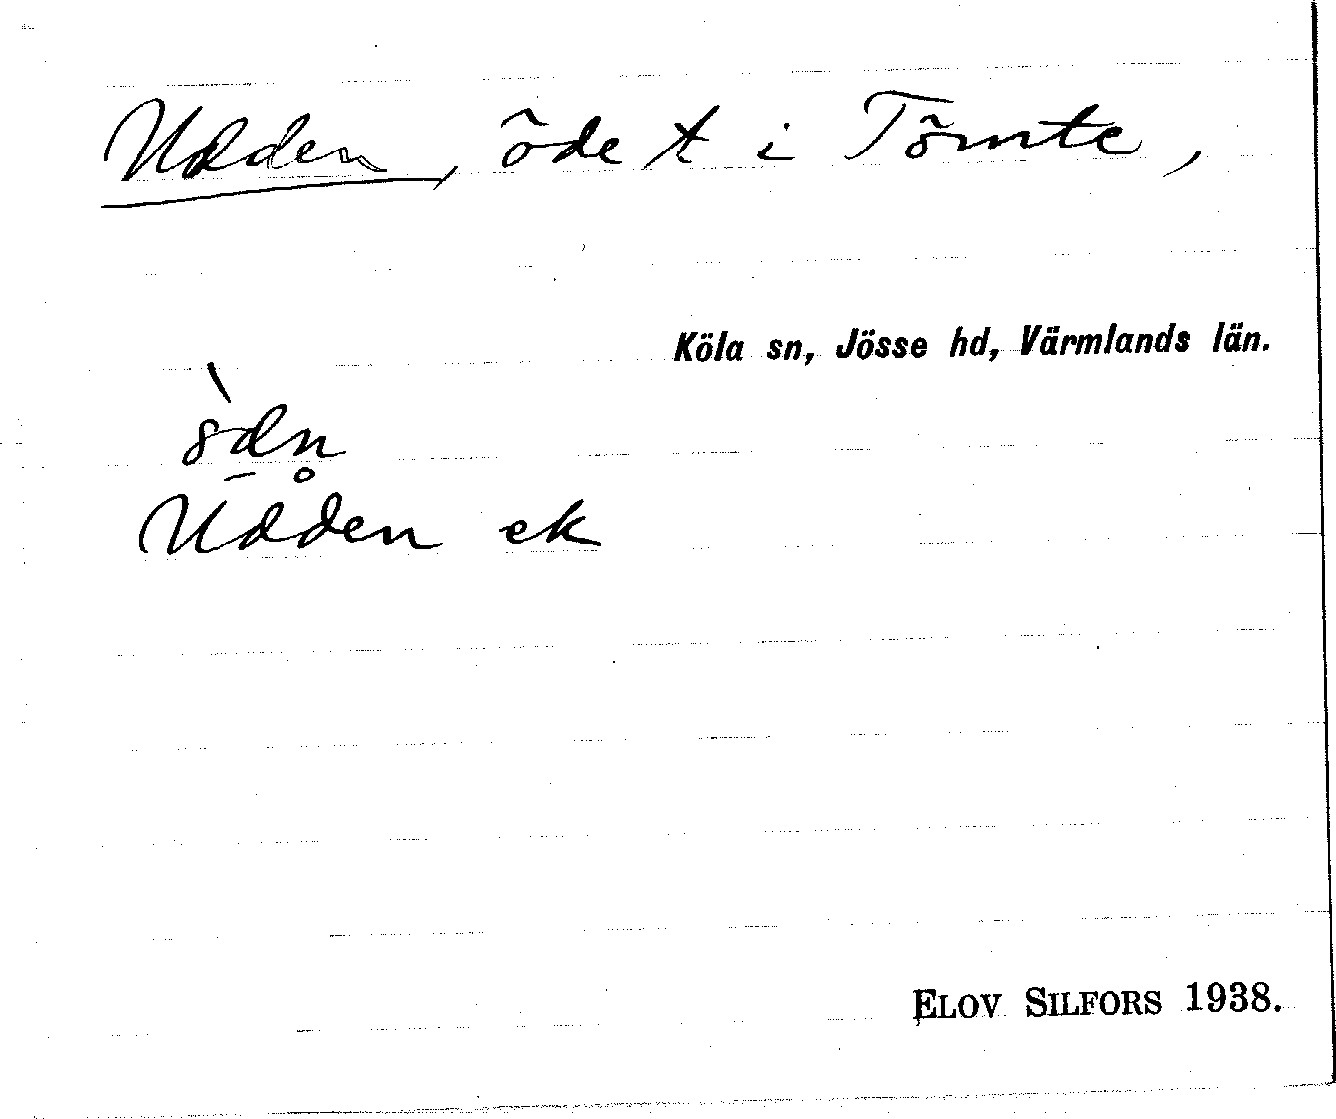 Udden, öde t i Tömte,
Köla sn, Jösse hd, Värmlands län.
Udden ek
ELOV SILFORS 1938.